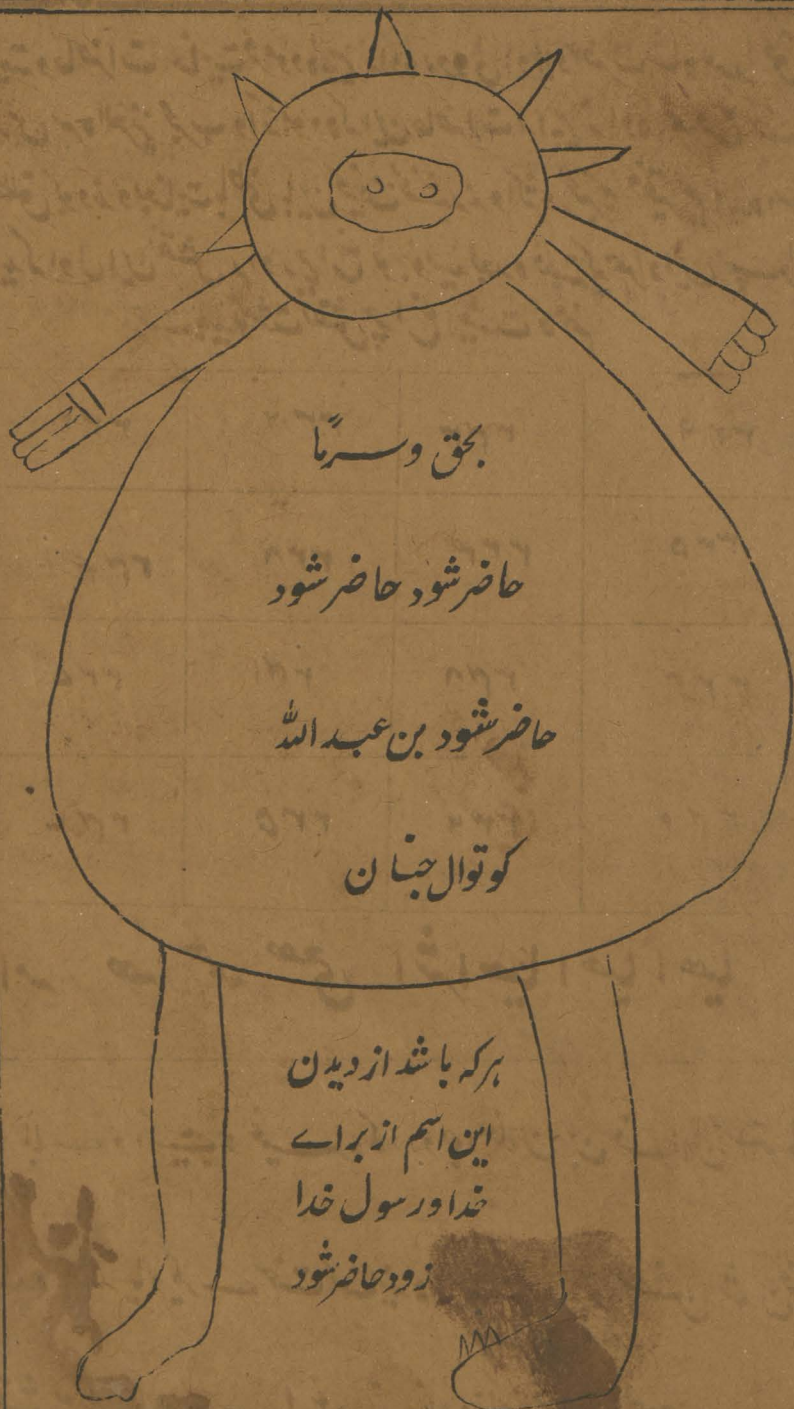 بحق وسرمًا
حاضر شود حاضر شود
حاضر شود بن عبد الله
کوتوال جنان
ہرکہ باشد از دیدن
این اسم از براے
خدا ورسول خدا
زود حاضر شود